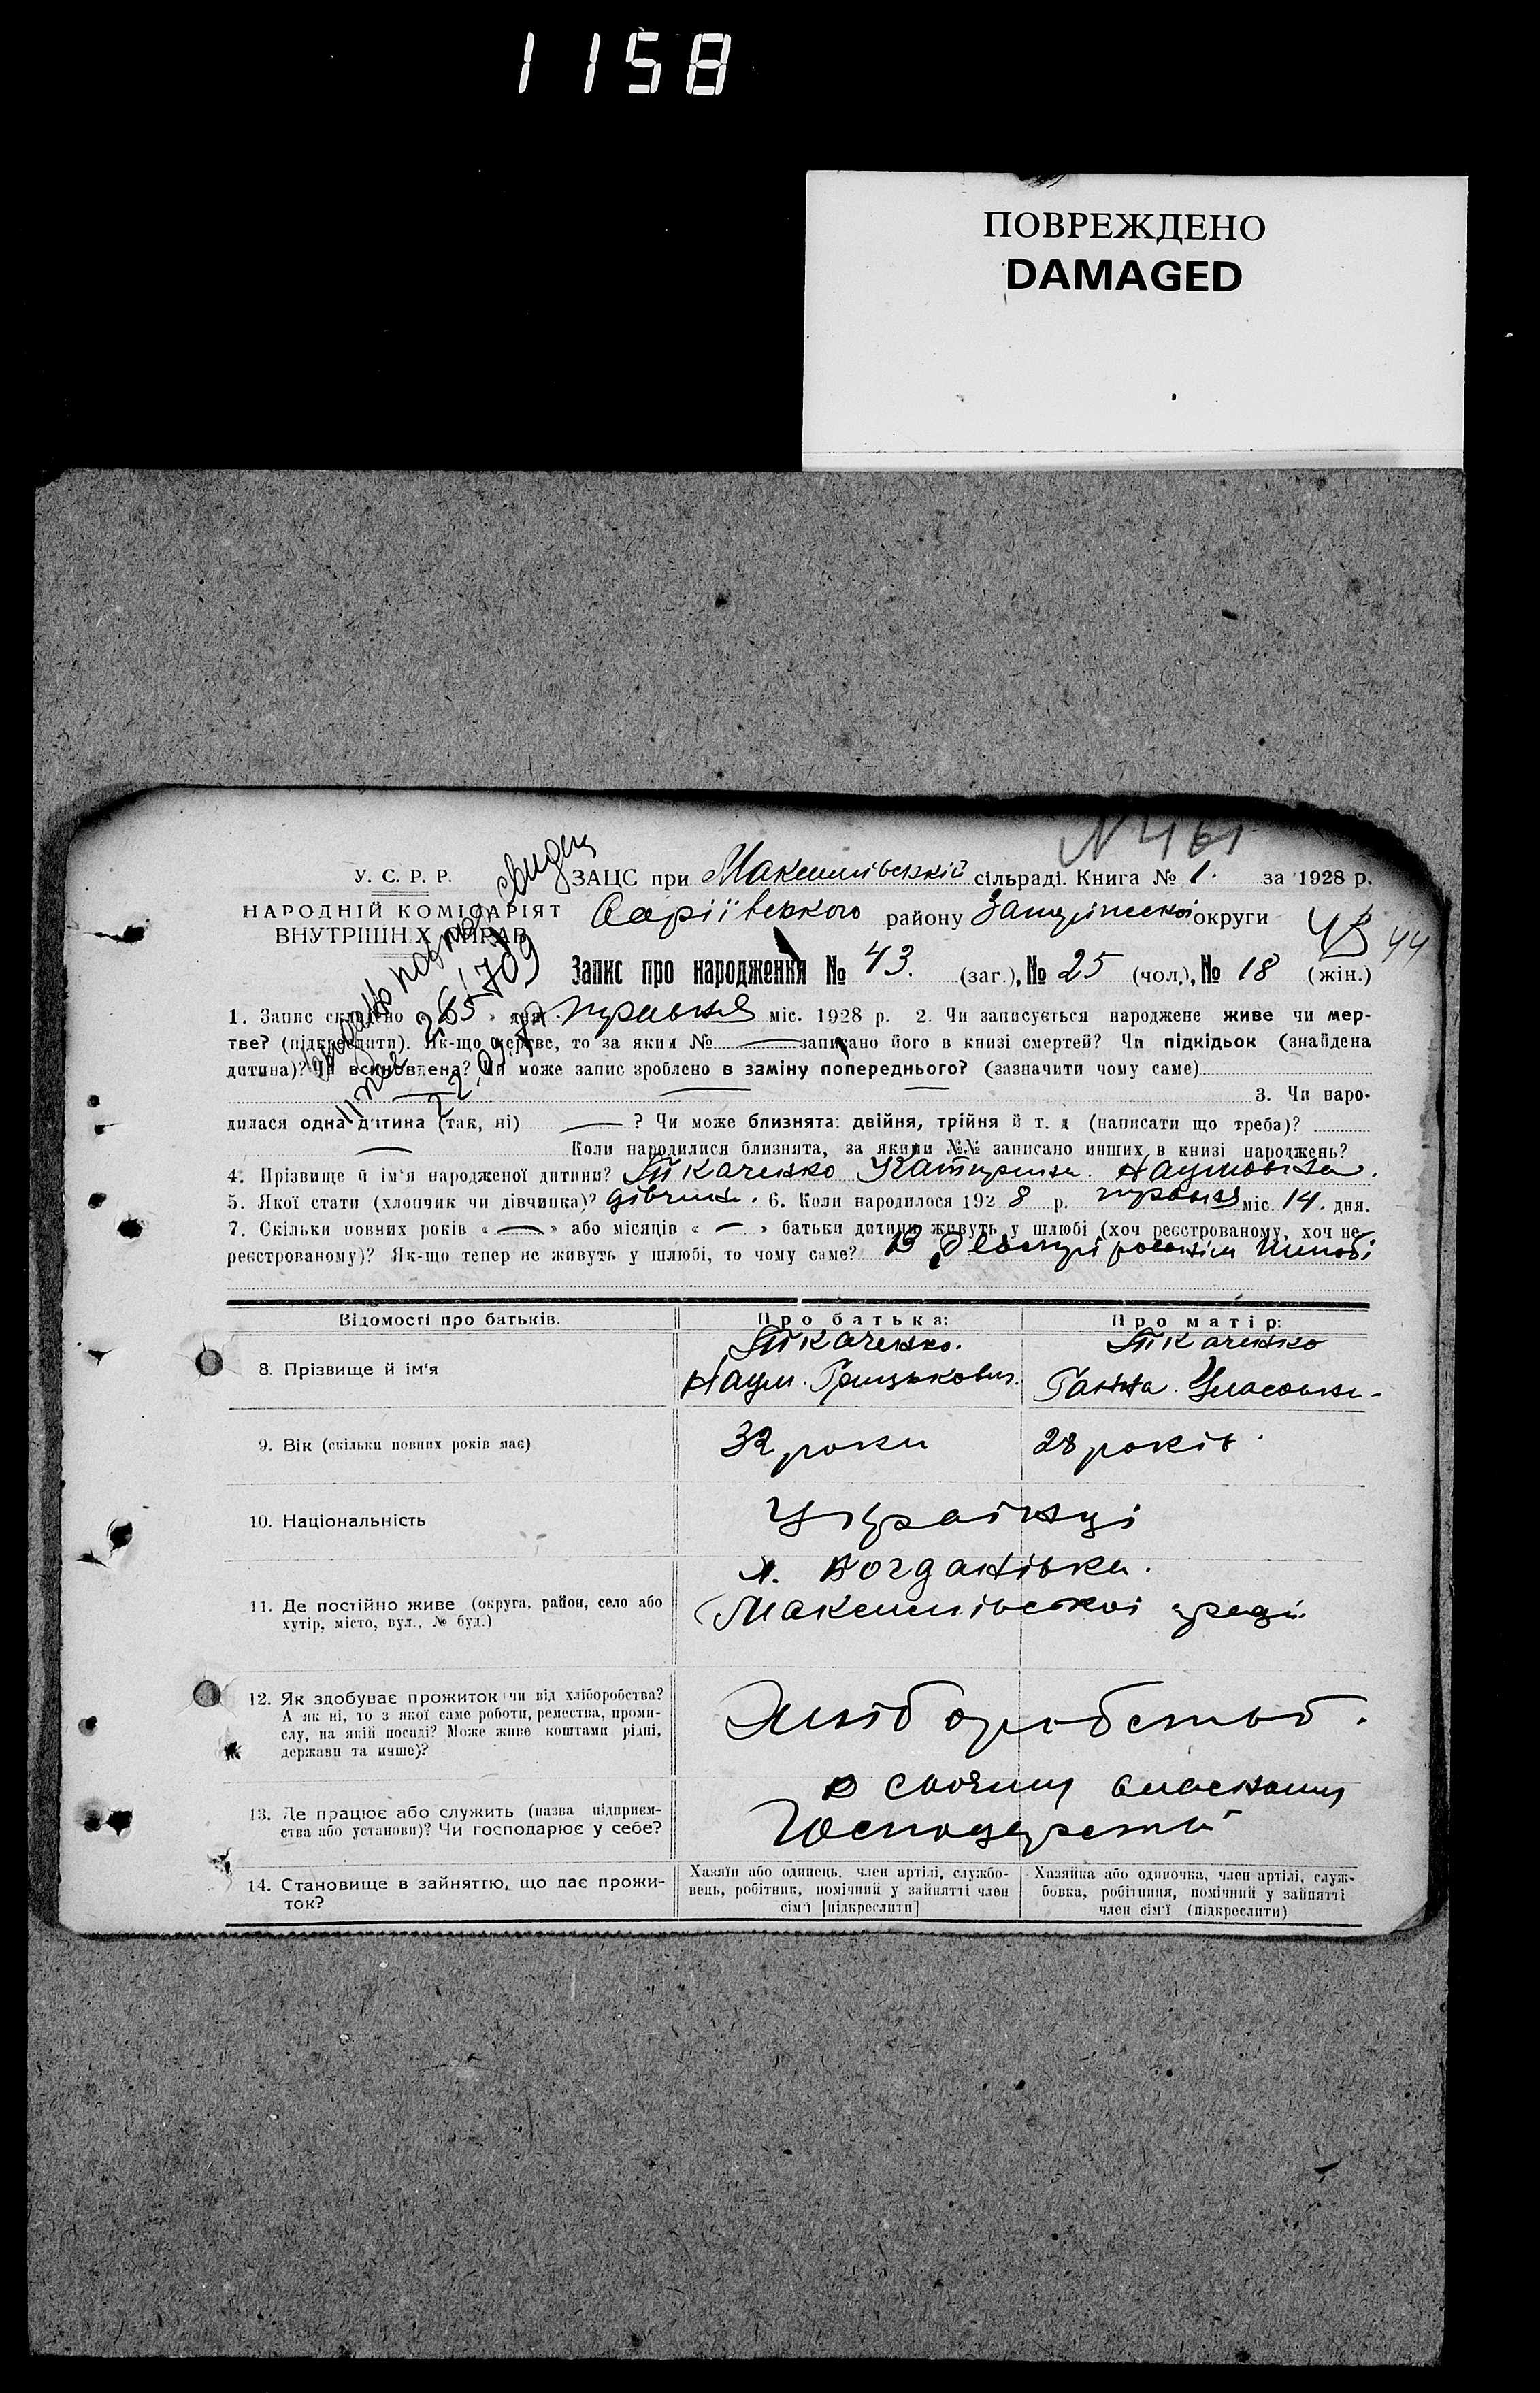 1158
ПОВРЕЖДЕНО
DAMAGED
N 461
У. С. Р. Р.
НАРОДНІЙ КОМІСАРІЯТ
ВНУТРІШНІХ СПРАВ
ЗАЦС при Максимівській сільраді. Книга № 1. за 1928 р.
району округи
44
Запис про народження № 43. (заг.), № 25 (чол.), № 18 (жін.)
1. Запис складено « » дня травня міс. 1928 р. 2. Чи записується народжене живе чи мер-
тве? (підкреслити). Як-що мертве, то за яким № — записано його в книзі смертей? Чи підкідьок (знайдена
дитина)? Чи всиновлена? Чи може запис зроблено в заміну попереднього? (зазначити чому саме)
3. Чи наро-
дилася одна дитина (так, ні) — ? Чи може близнята: двійня, трійня й т. д (написати що треба)?
Коли народилися близнята, за якими №№ записано инших в книзі народжень?
4. Прізвище й ім'я народженої дитини? Ткаченко Катерина Наумовна.
5. Якої стати (хлопчик чи дівчинка)? дівчина. 6. Коли народилося 1928 р. травня міс. 14. дня.
7. Скільки повних років « — » або місяців « — » батьки дитини живуть у шлюбі (хоч реєстрованому, хоч не
реєстрованому)? Як-що тепер не живуть у шлюбі, то чому саме? В шлюбі
Відомості про батьків.
Про батька:
Про матір:
8. Прізвище й ім'я
Ткаченко.
Наум. Грицькович.
Ткаченко
Ганна
9. Вік (скільки повних років має)
32 роки
28 років
10. Національність
Українці
11. Де постійно живе (округа, район, село або
хутір, місто, вул., № буд.)
х. Богданівка.
Максимівської сради
12. Як здобуває прожиток чи від хліборобства?
А як ні, то з якої саме роботи, ремества, проми-
слу, на якій посаді? Може живе коштами рідні,
держави та инше)?
Хліборобство.
13. Де працює або служить (назва підприєм-
ства або установи)? Чи господарює у себе?
в своєму власному
14. Становище в зайняттю, що дає прожи-
ток?
Хазяїн або одинець, член артілі, службо-
вець, робітник, помічний у зайнятті член
сім'ї [підкреслити]
Хазяйка або одиночка, член артілі, служ-
бовка, робітниця, помічний у зайнятті
член сім'ї (підкреслити)